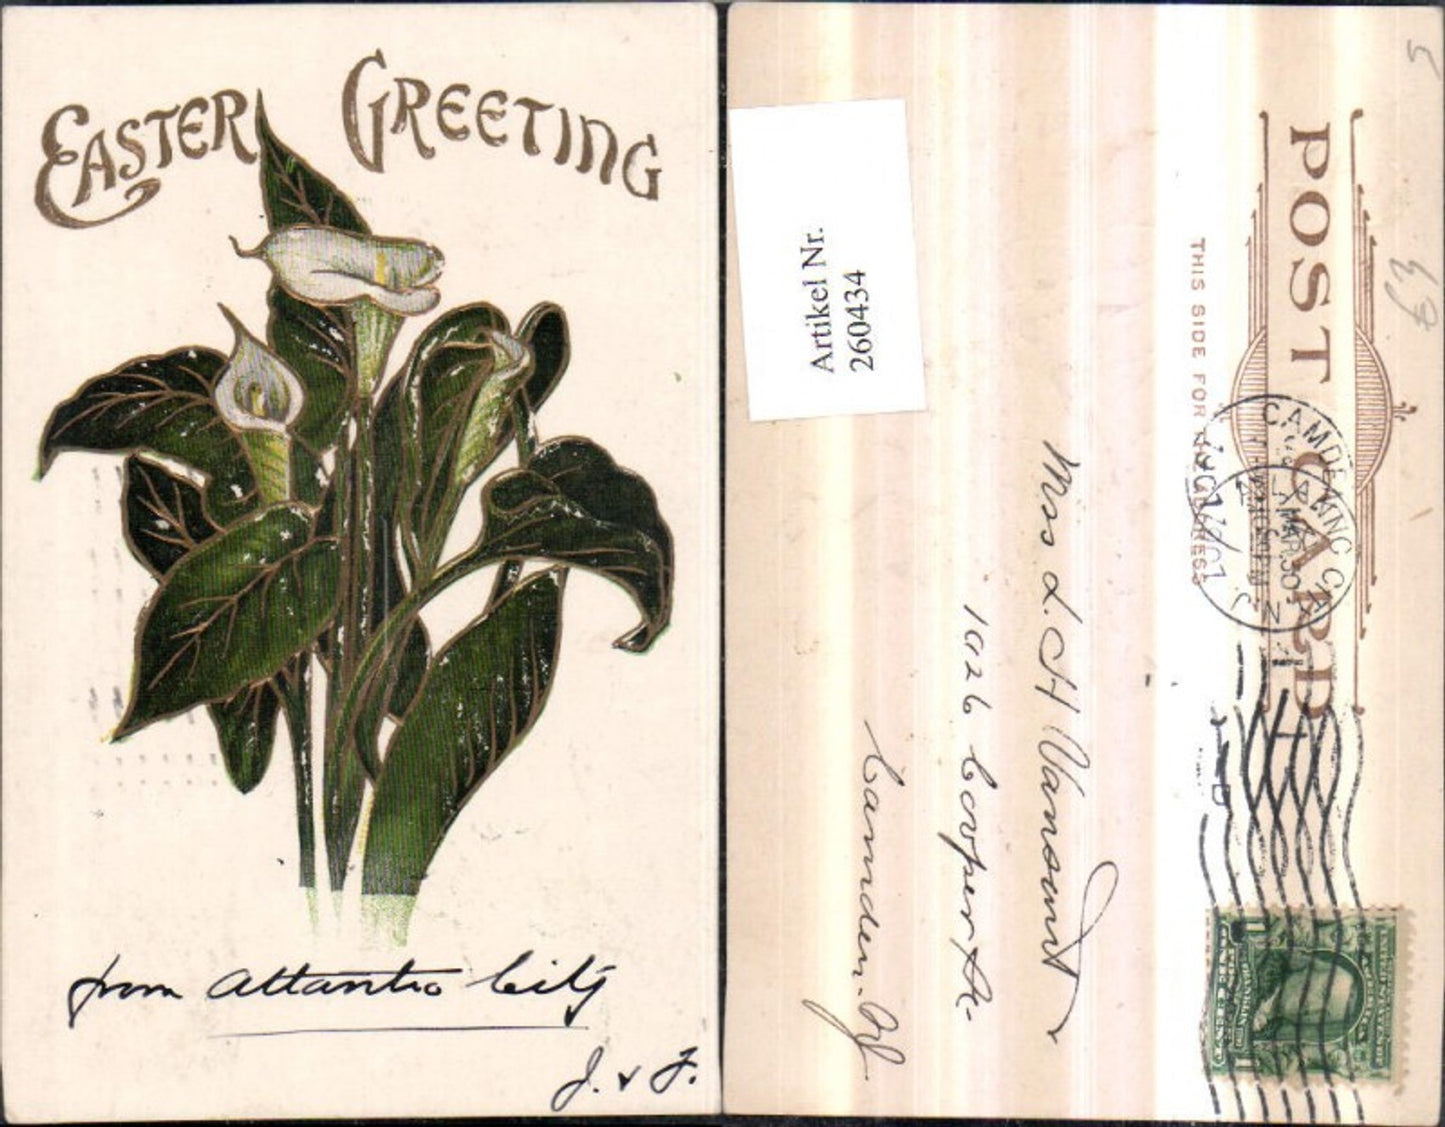 EASTER GREETING
from Atlantic City
J. & F.
Artikel Nr.
260434
POST CARD
THIS SIDE FOR
CAMDEN
N.J.
1907
Miss L. H Vansant
1026 Cooper St.
Camden. NJ.
63
5